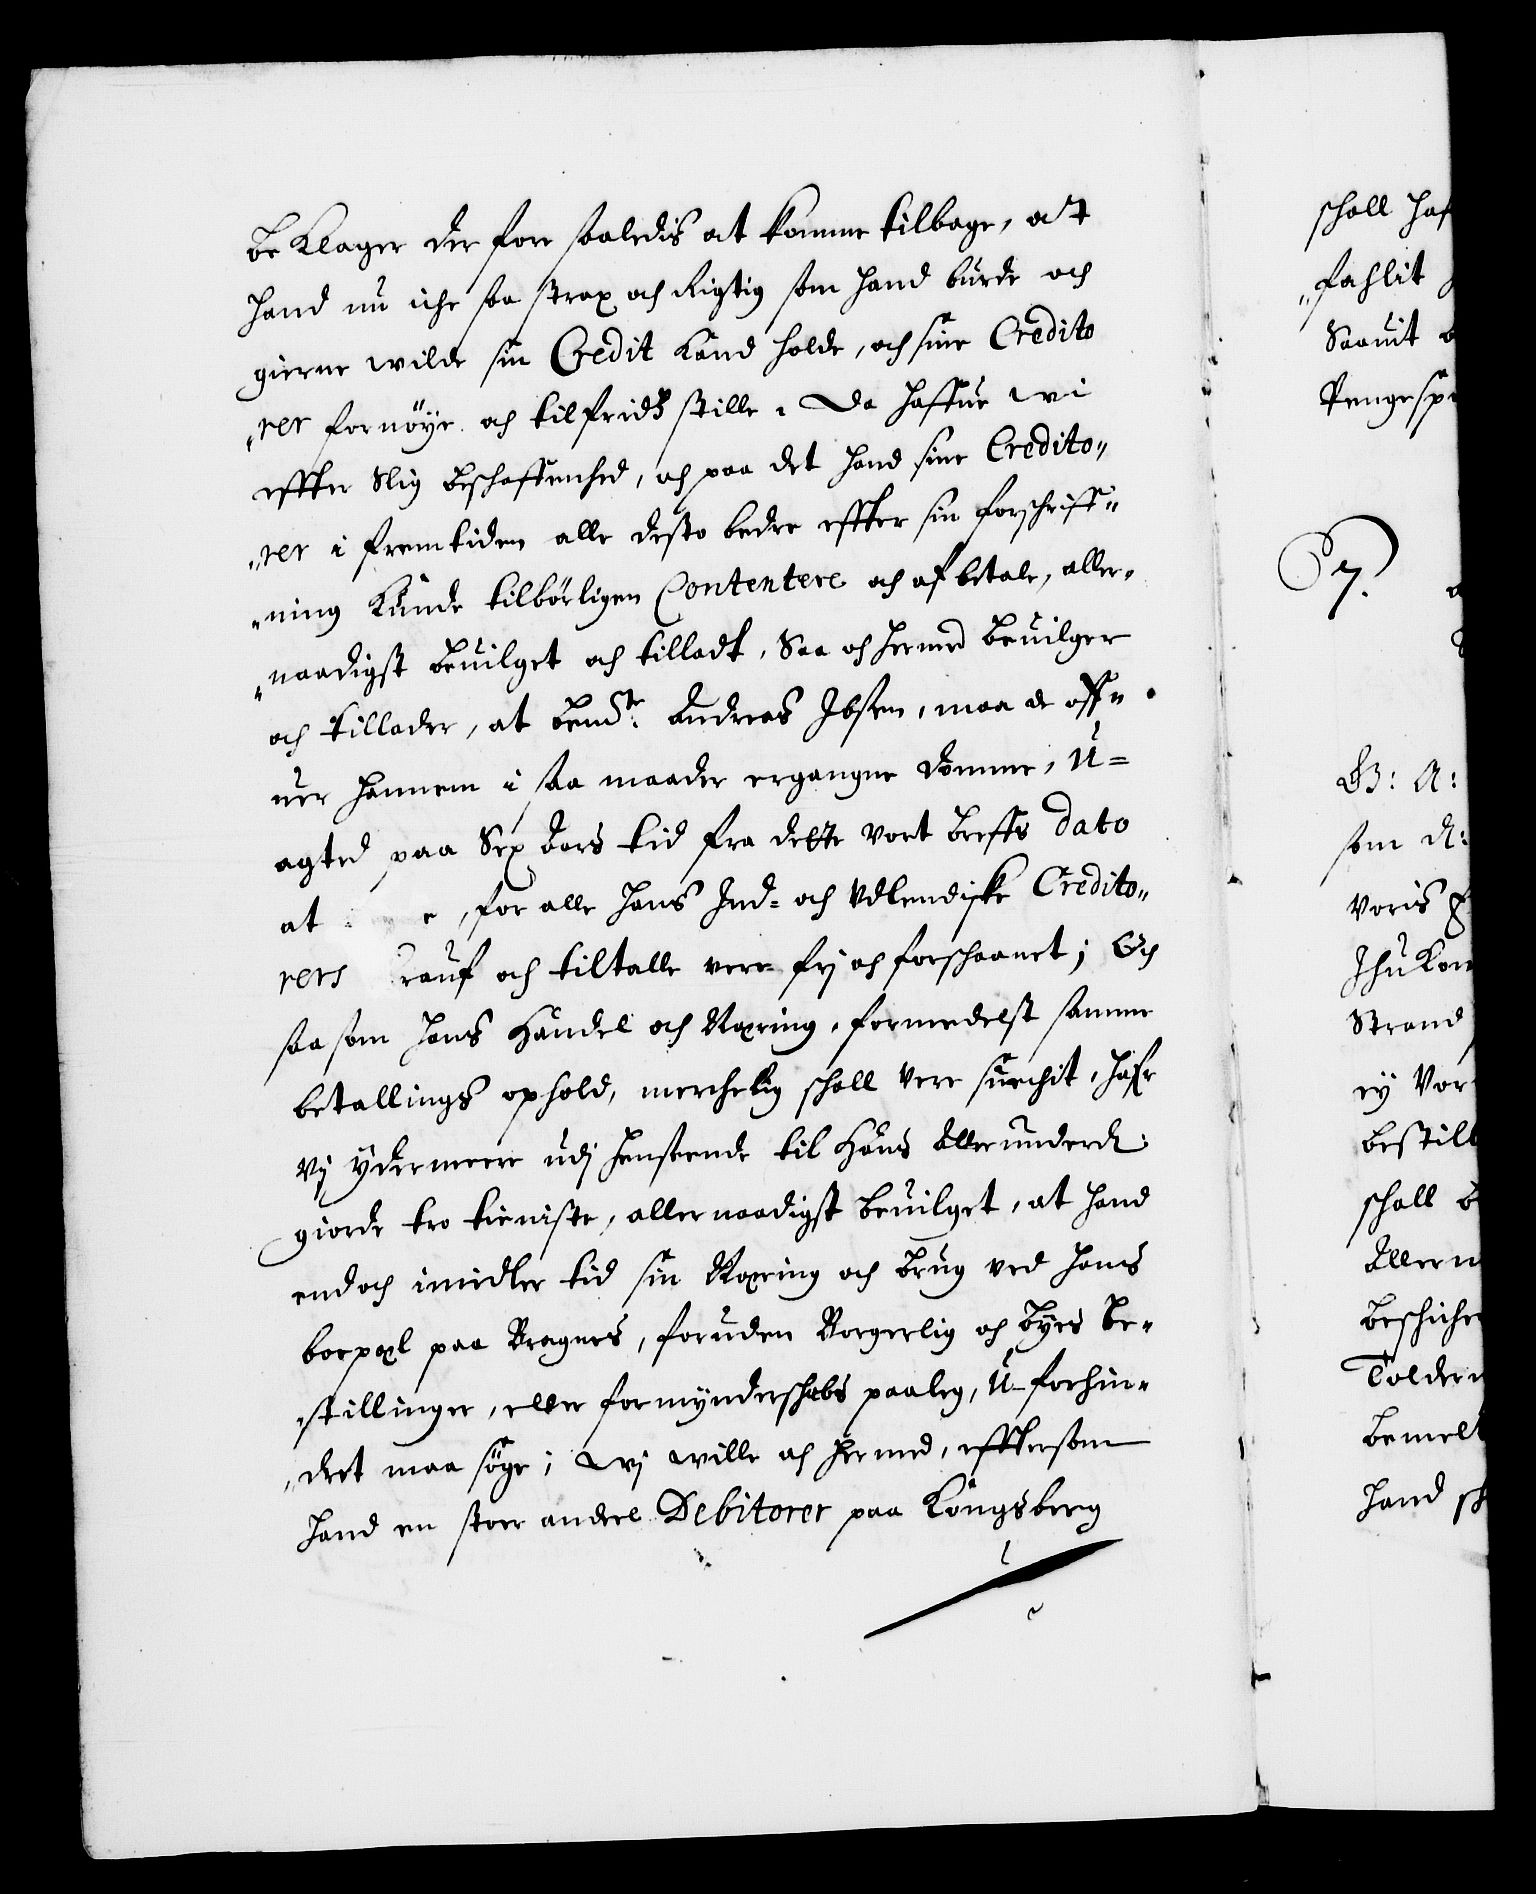 beklager der fore saaledis at komme tilbage, at
hand nu iche saa strax och Rigtig som hand burde och
gierne wilde sin Credit kand holde, och sine Credito
„rer fornöye och tilfridsstille. Da haffue wi
effter Slig beschaffenhed, och paa det hand sine Credito„
„rer i fremtiden alle desto bedre effter sin forschriff„
„ning kunde tilbörligen Contentere och afbetale, aller„
„naadigst beuilget och tilladt, Saa och hermed beuilger
och tillader, at bemte: Andreas Ibsen, maa de off„
uer hannem i saa maader ergangne Domme, U=
agted paa Sex Aars tid fra dette vort breffs dato
at e, for alle hans Ind= och Udlendiske Credito„
rers krauf och tiltalle vere frj och forschaanet; Och
saa som hans Handel och Næring, formedelst samme
betallings ophold, merckelig schall vere suechit, hafr
Vj ydermeere udj henseende til Hans Allerunderd:
giorde tro tieniste, allernaadigst beuilget, at hand
endoch imidler tid sin Næring och brug ved hans
boepæl paa Bragnes, foruden Borgerlig och byes be„
„stillinger, eller formynderskabs paaleg, U-forhin„
„dret maa söge; Wj wille och hermed, efftersom
hand en stoer andeel Debitorer paa Kongsberg
schall haf
„fahlit
Saauit
Pengespe
7.
G: A:
som A:
Voris
Jhukom
Strand
ey Vor
bestill
schall b
Allern
beschiche
Tolder
bemelt
hand sch